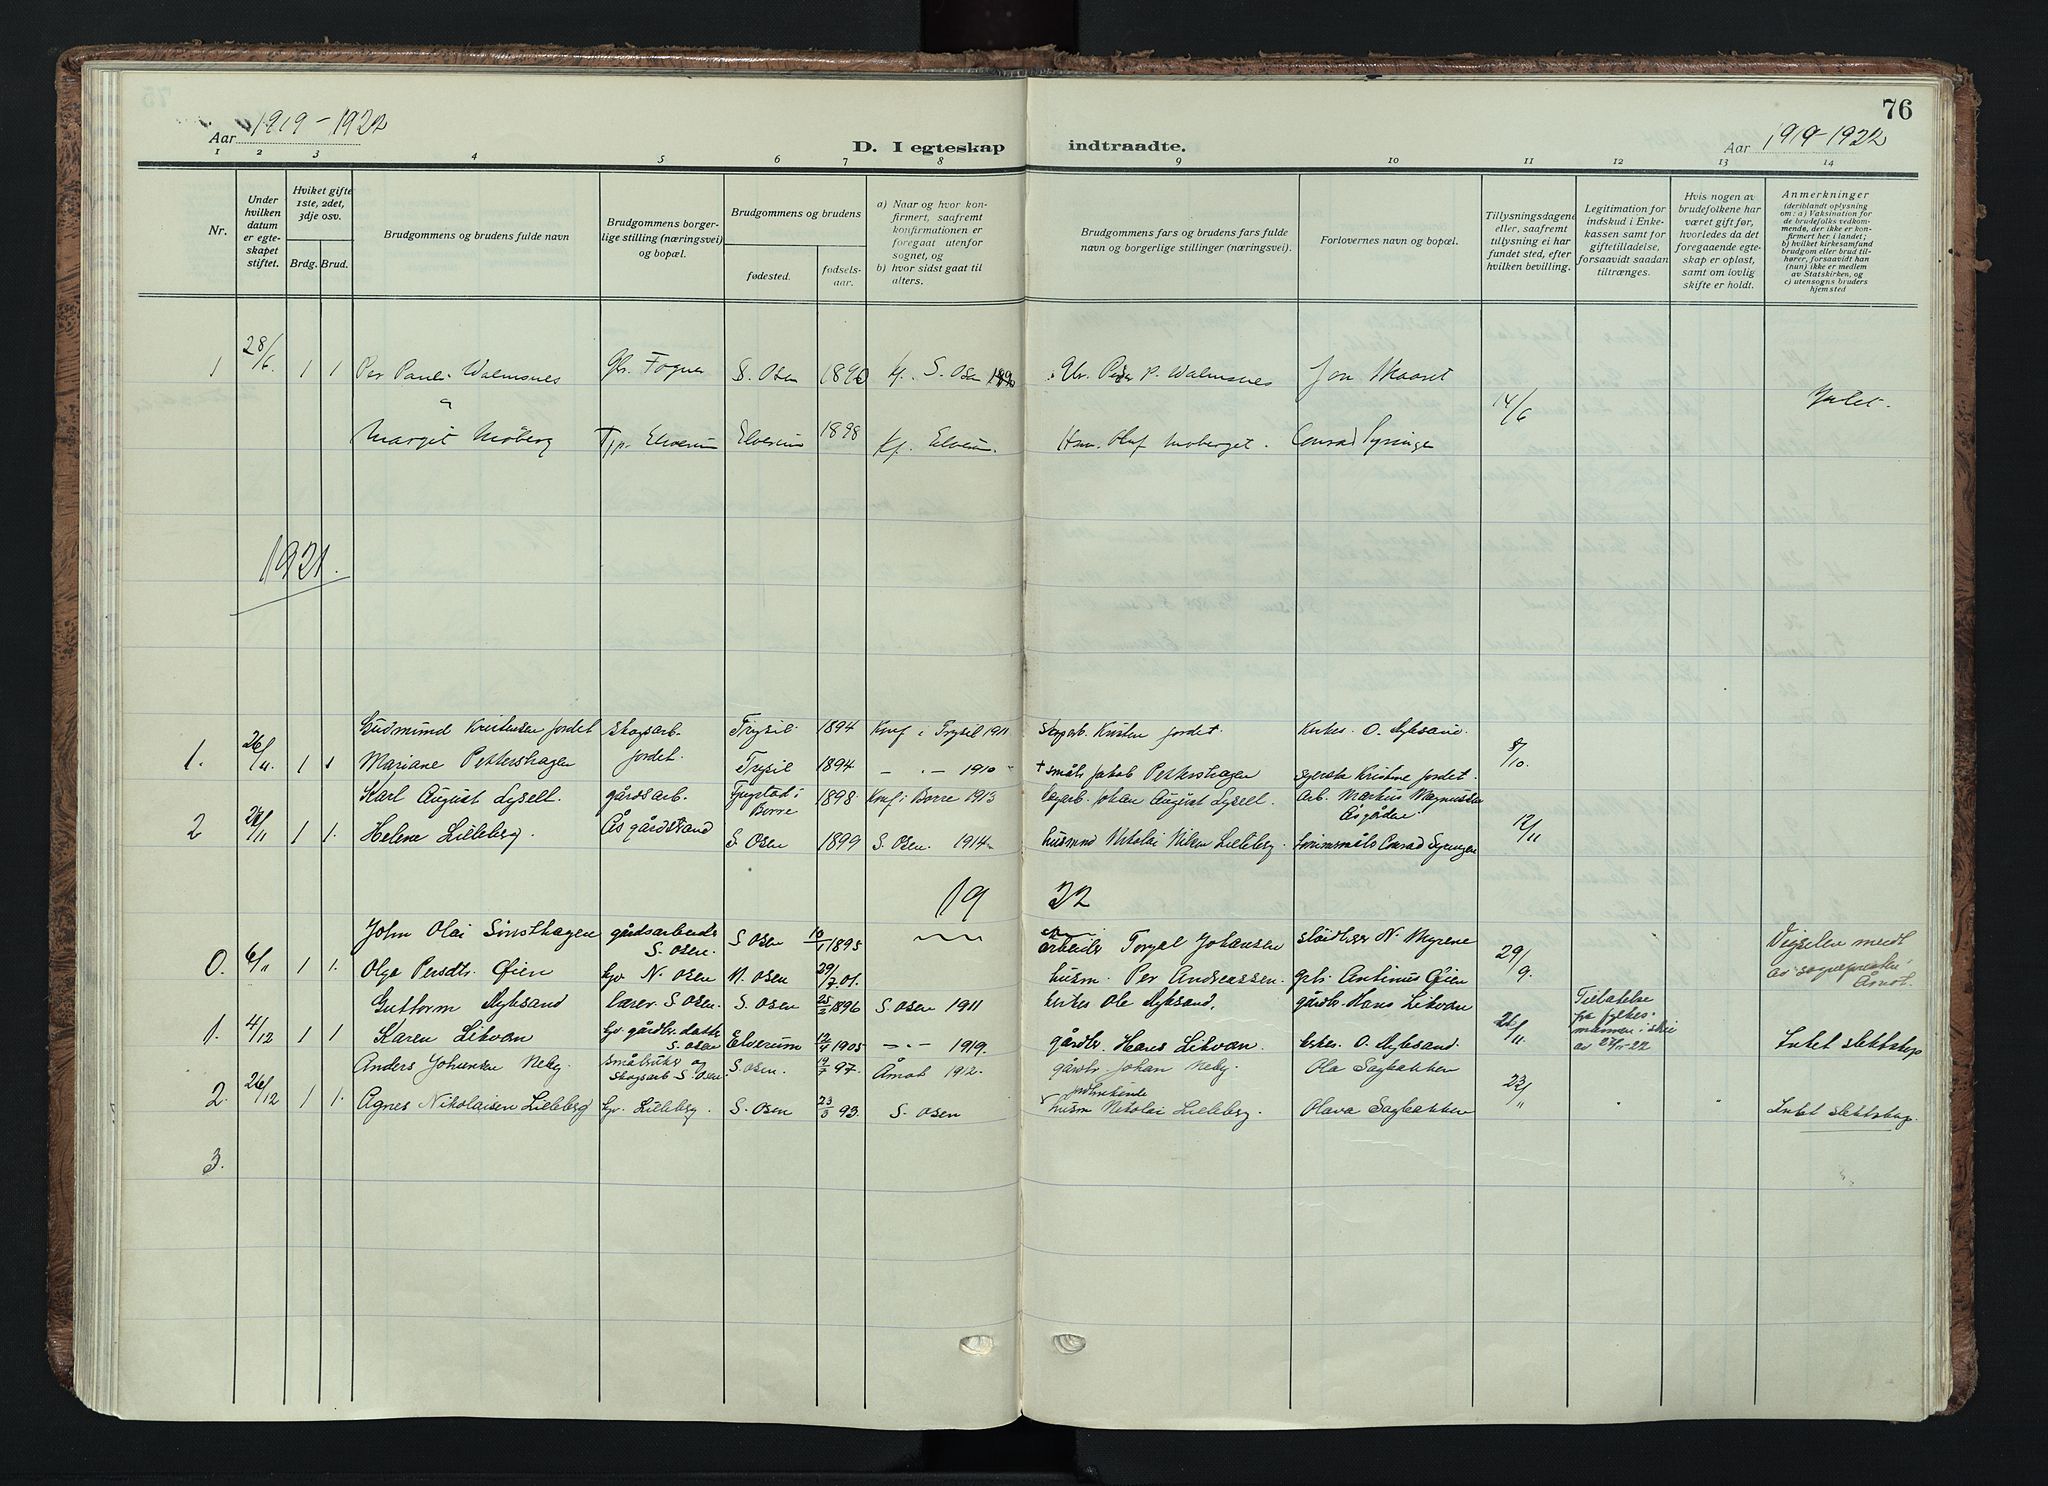 76
Aar 1919-1922
D. I egteskap indtraadte.
Aar 1919-1922
1 2 3 4 5 6 7 8 9 10 11 12 13 14
Nr.
Under hvilken datum er egteskapet stiftet.
Hviket gifte 1ste, 2det, 3dje osv.
Brdg. Brud.
Brudgommens og brudens fulde navn
Brudgommens borgerlige stilling (næringsvei) og bopæl.
Brudgommens og brudens
fødested. fødselsaar.
a) Naar og hvor konfirmert, saafremt konfirmationen er foregaat utenfor sognet, og
b) hvor sidst gaat til alters.
Brudgommens fars og brudens fars fulde navn og borgerlige stillinger (næringsvei).
Forlovernes navn og bopæl.
Tillysningsdagene eller, saafremt tillysning ei har fundet sted, efter hvilken bevilling.
Legitimation for indskud i Enkekassen samt for giftetilladelse, forsaavidt saadan tiltrænges.
Hvis nogen av brudefolkene har været gift før, hvorledes da det foregaaende egteskap er opløst, samt om lovlig skifte er holdt.
Anmerkninger
(deriblandt oplysning om: a) Vaksination for de brudefolks vedkommende, der ikke er konfirmert her i landet; b) hvilket kirkesamfund brudgom eller brud tilhører, forsaavidt han (hun) ikke er medlem av Statskirken, og c) utensogns bruders hjemsted
1 28/6. 1 1 Per Paul Walmsnes S. Osen 1890 Kf. S. Osen P. Walmsnes Jon Skaaret
14/6 Intet.
Margit Moberg Elverum Elverum 1898 Kf. Elverum. Olof Moberget. Conrad Syringen
1921.
Gudmund Kristensen Jordet Skogsarb. Trysil 1894 Konf. i Trysil Kristen Jordet. Kirkes. O. Nyksand.
1. 26/11. 1 1 Mariane Pettershagen Jordet. Trysil 1894 - " - 1910 + småb. Jakob Pettershagen Kristine Jordet. 8/10.
Karl August Lysell. gårdsarb. i Borre 1898 Konf i Borre 1913 Johan August Lysell. Arb. Markus Magnussen
2 26/11 1 1. Helene Lilleberg. Åsgårdstrand S. Osen 1899 S. Osen. 1914 husmnd Nikolai Nilsen Lilleberg. Conrad Syringen 12/11
1922
John Olai Sønsthagen gårdsarbeider S. Osen. S. Osen 10/1 1895 arbeider Torgal Johansen N. Myrene
0. 6/11 1 1. Olga Persdtr. Øien N. Osen N. Osen 29/7 01. husm. Per Andreassen. Antinus Øien 29/9. Vigselen medt av sognepresten i Åmot.
Guttorm Nyksand lærer. S. Osen. S. Osen 25/2 1896 S. Osen 1911 Ole Nyksand. gårdbr. Hans Likvan
1. 4/12 1 1 Karen Likvan gårdbr. datter S. Osen Elverum 12/4 1905 - " - 1919. gårdbr. Hans Likvan. kirkes. O. Nyksand. 26/11 Tillatelse fra fylkesmannen i av 27/11-22 Intet slektskap
Anders Johansen Neby. småbruker og skogsarb S. Osen. S. Osen. 97. Åmot 1912. gårdbr. Johan Neby. Ola Sagbakken
2. 26/12 1 1. Agnes Nikolaisen Lilleberg Lilleberg. S. Osen 23/3 93. S. Osen husm Nikolai Lilleberg. Olava Sagbakken 23/11 Intet slektskap.
3.